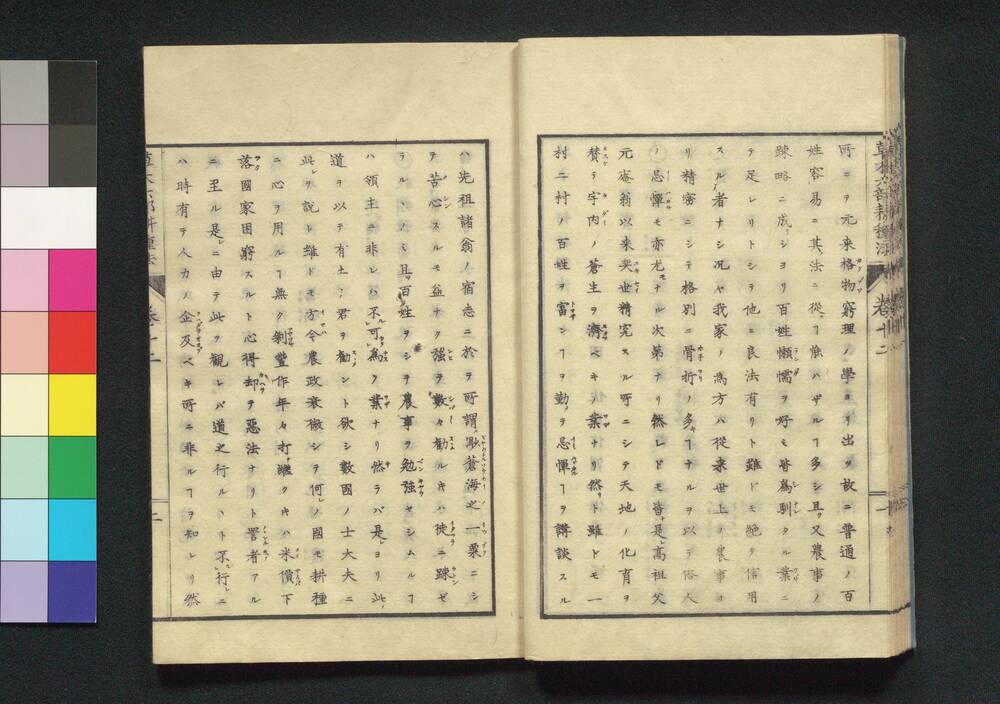 草木六部耕種法 卷十二
所ニヲ元来格物窮理ノ學ヨリ出ツ故ニ普通ノ百
姓容易ニ其法ニ從ヿ能ハザルヿ多シ且又農事ノ
踈略ニ成シヨリ百姓懶懦ヲ好モ皆爲馴タル業ニ
テ足レリトシテ他ニ良法有リト雖ドモ絶タ信用
スル者ナシ况ヤ我家ノ爲方ハ從来世上ノ農事ヨ
リ精密ニシテ格別ニ骨折ノ多ヿナルヲ以テ俗人
ノ忌憚モ亦尤ナル次第ナリ然レドモ皆是高祖父
元庵翁以来奕世精究スル所ニシテ天地ノ化育ヲ
賛ヶ宇内ノ蒼生ヲ濟ベキノ業ナリ然ト雖ドモ一
村二村ノ百姓ヲ富シヿヲ勤ノ忌憚ヿヲ講談スル
ハ先祖諸翁ノ宿志ニ於ヲ所謂眇蒼海之一粟ニシ
テ苦心スルモ益ナク強ヲ數々勸ルキハ徒ニ踈ゼ
ラルヽノミ且百姓ヲシテ農事ヲ勉強セシムルヿ
ハ領主ニ非レハ不可爲ノ業ナリ然ラバ是ヨリ此
道ヲ以テ有土ノ君ヲ勸ント欲シ數國ノ士大夫ニ
此レヲ説ト雖ドモ方今農政衰微シテ何ノ國モ耕種
ニ心ヲ用ルヿ無ク剰豐作年々打續クキハ米價下
落國家困窮スルト心得却ヲ惡法ナリト詈者アル
ニ至ル是ニ由テ此ヲ觀レバ道之行ルヽト不行ニ
ハ時有ヲ人カノ企及ベキ所ニ非ルヿヲ知レリ然